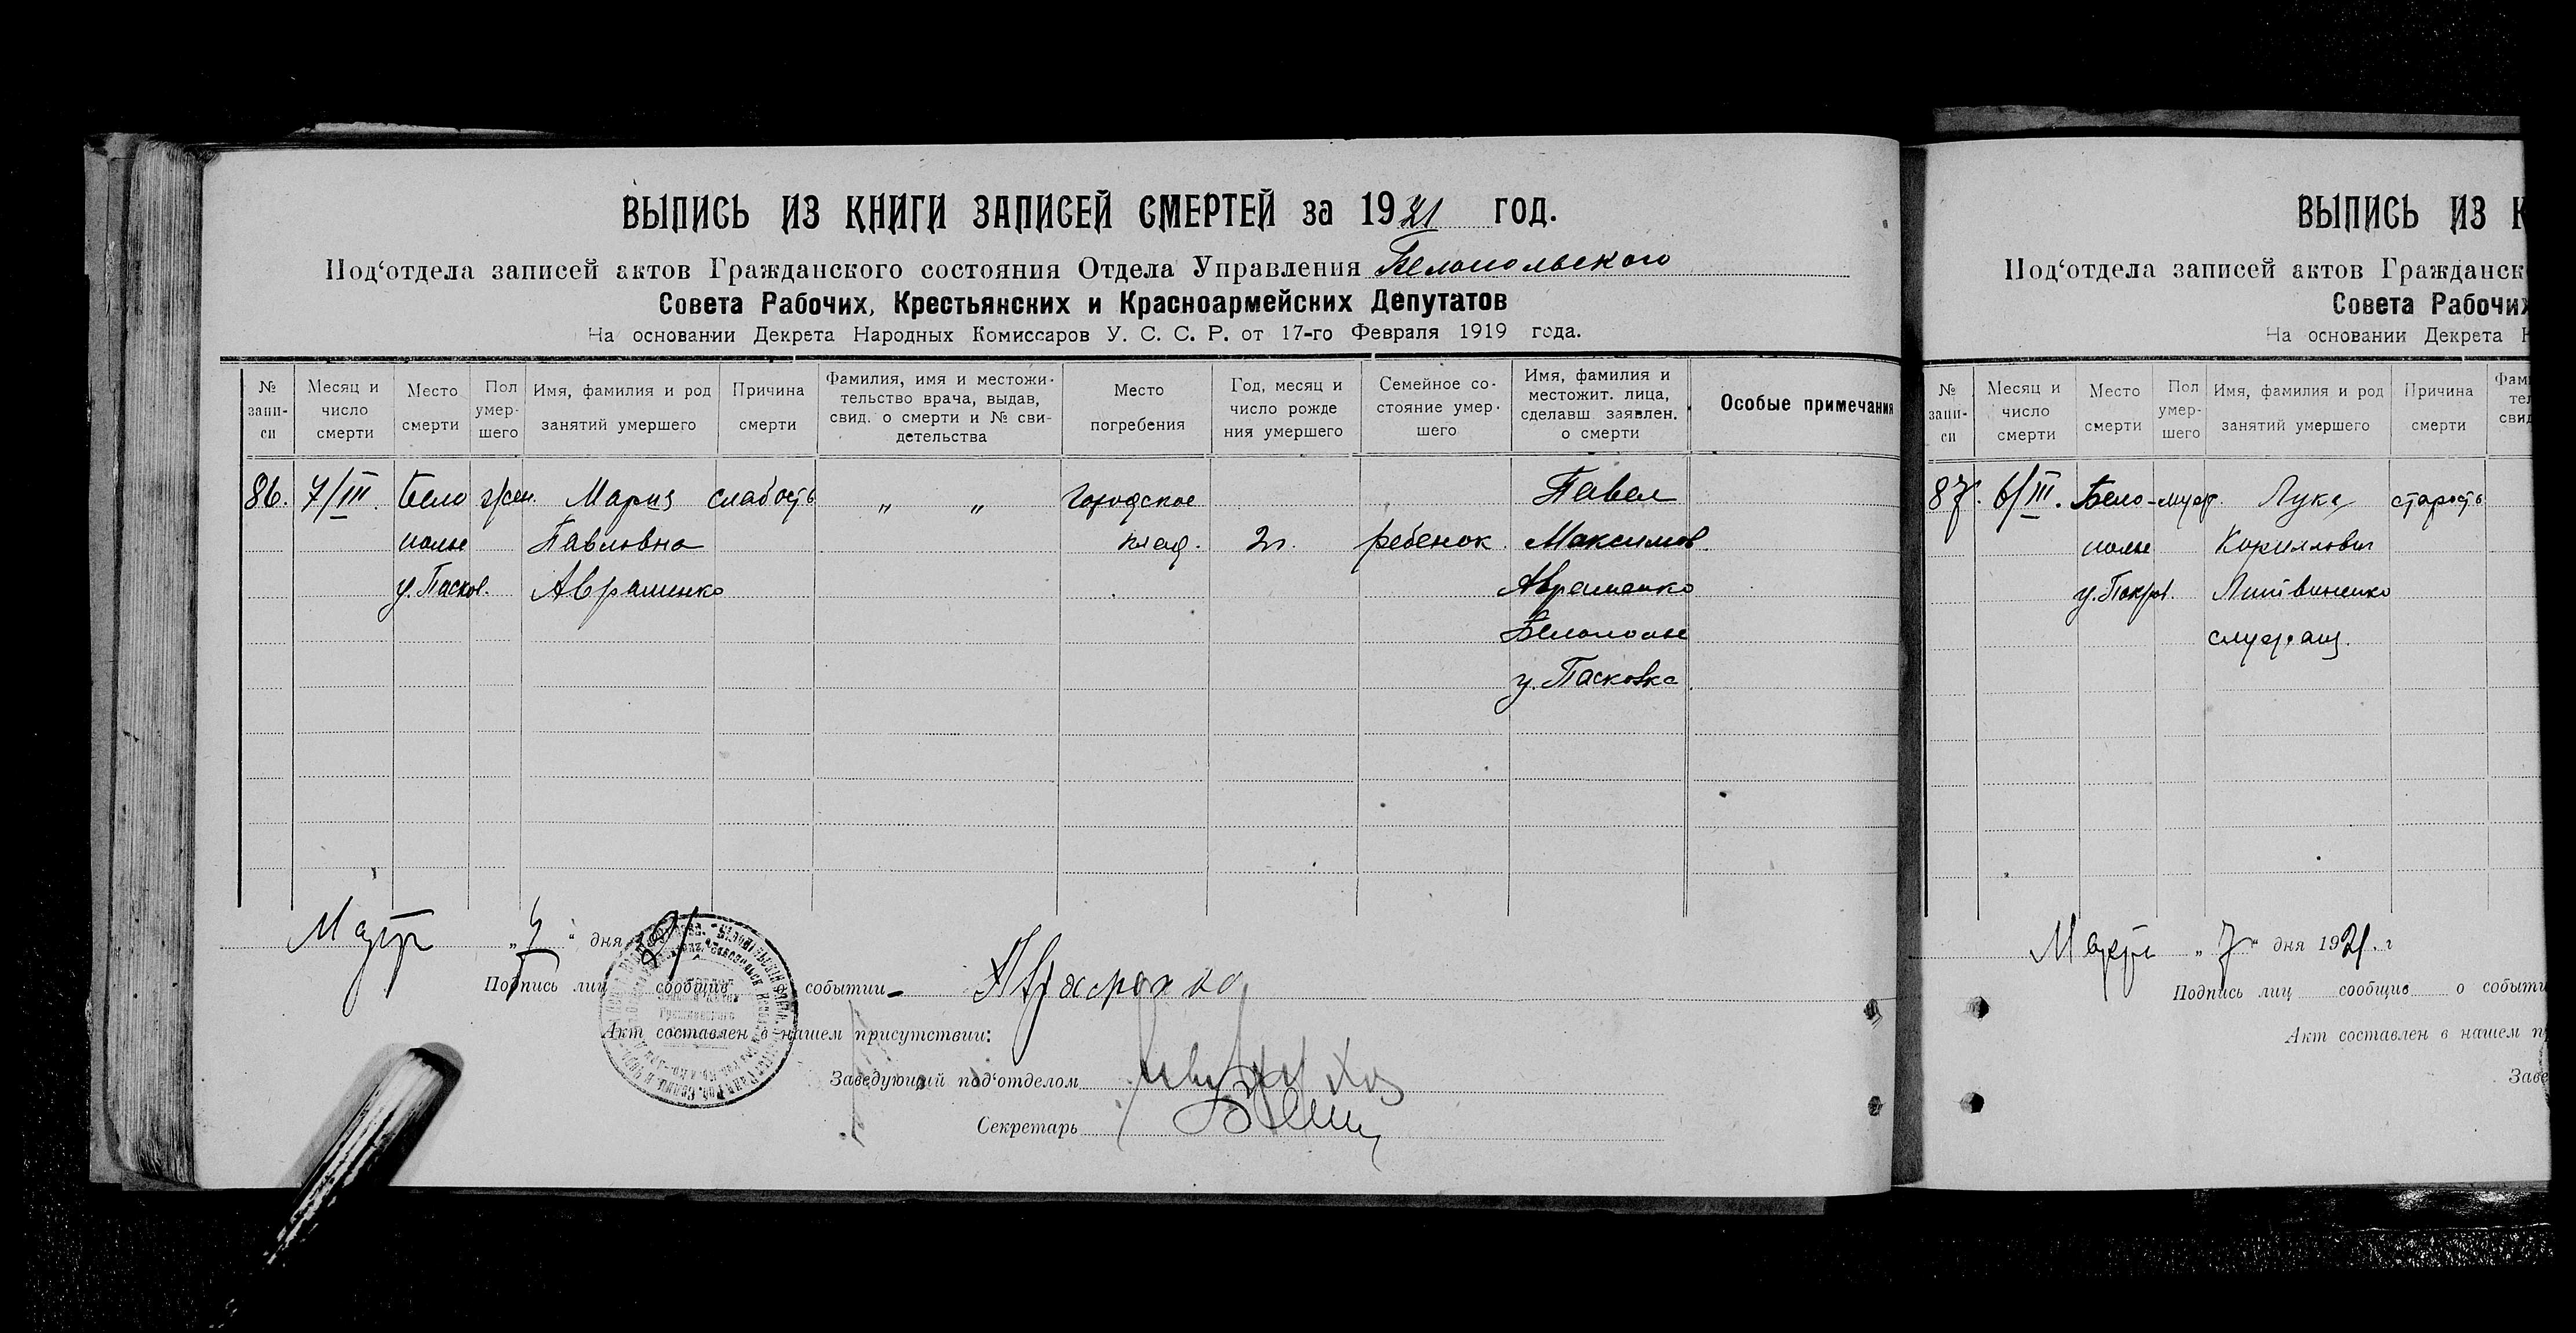 ВЫПИСЬ ИЗ КНИГИ ЗАПИСЕЙ СМЕРТЕЙ за 1921 год.
Под‘отдела записей актов Гражданского состояния Отдела Управления Белопольского
Совета Рабочих, Крестьянских и Красноармейских Депутатов
На основании Декрета Народных Комиссаров У. С. С. Р. от 17-го Февраля 1919 года.
№ запи-си
Месяц и число смерти
Место смерти
Пол умер-шего
Имя, фамилия и род занятий умершего
Причина смерти
Фамилия, имя и местожи-тельство врача, выдав, свид. о смерти и № сви-детельства
Место погребения
Год, месяц и число рожде ния умершего
Семейное со-стояние умер-шего
Имя, фамилия и местожит. лица, сделавш заявлен. о смерти
Особые примечания
86. 7/III. Бело жен. Мария слабость „ „ Городское Павел
полье Павловна клад. 2 г. ребенок Максимов
у. Пасков. Авраменко Авраменко
Белополье
у. Пасковка
Март „7“ дня 1921
Подпись лиц сообщив событии Авраменко
Акт составлен в нашем присутствии:
Заведующий под‘отделом
Секретарь
ВЫПИСЬ ИЗ К
Под‘отдела записей актов Гражданск
Совета Рабочих
На основании Декрета Н
№ запи-си
Месяц и число смерти
Место смерти
Пол умер-шего
Имя, фамилия и род занятий умершего
Причина смерти
Фам
тел
свид
87. 6/III. Бело- муж. Лука старость
полье Кориллович
у. Покров. Литвиненко
служащ.
Март „7“ дня 1921. г
Подпись лиц сообщив о событи
Акт составлен в нашем п
Заве